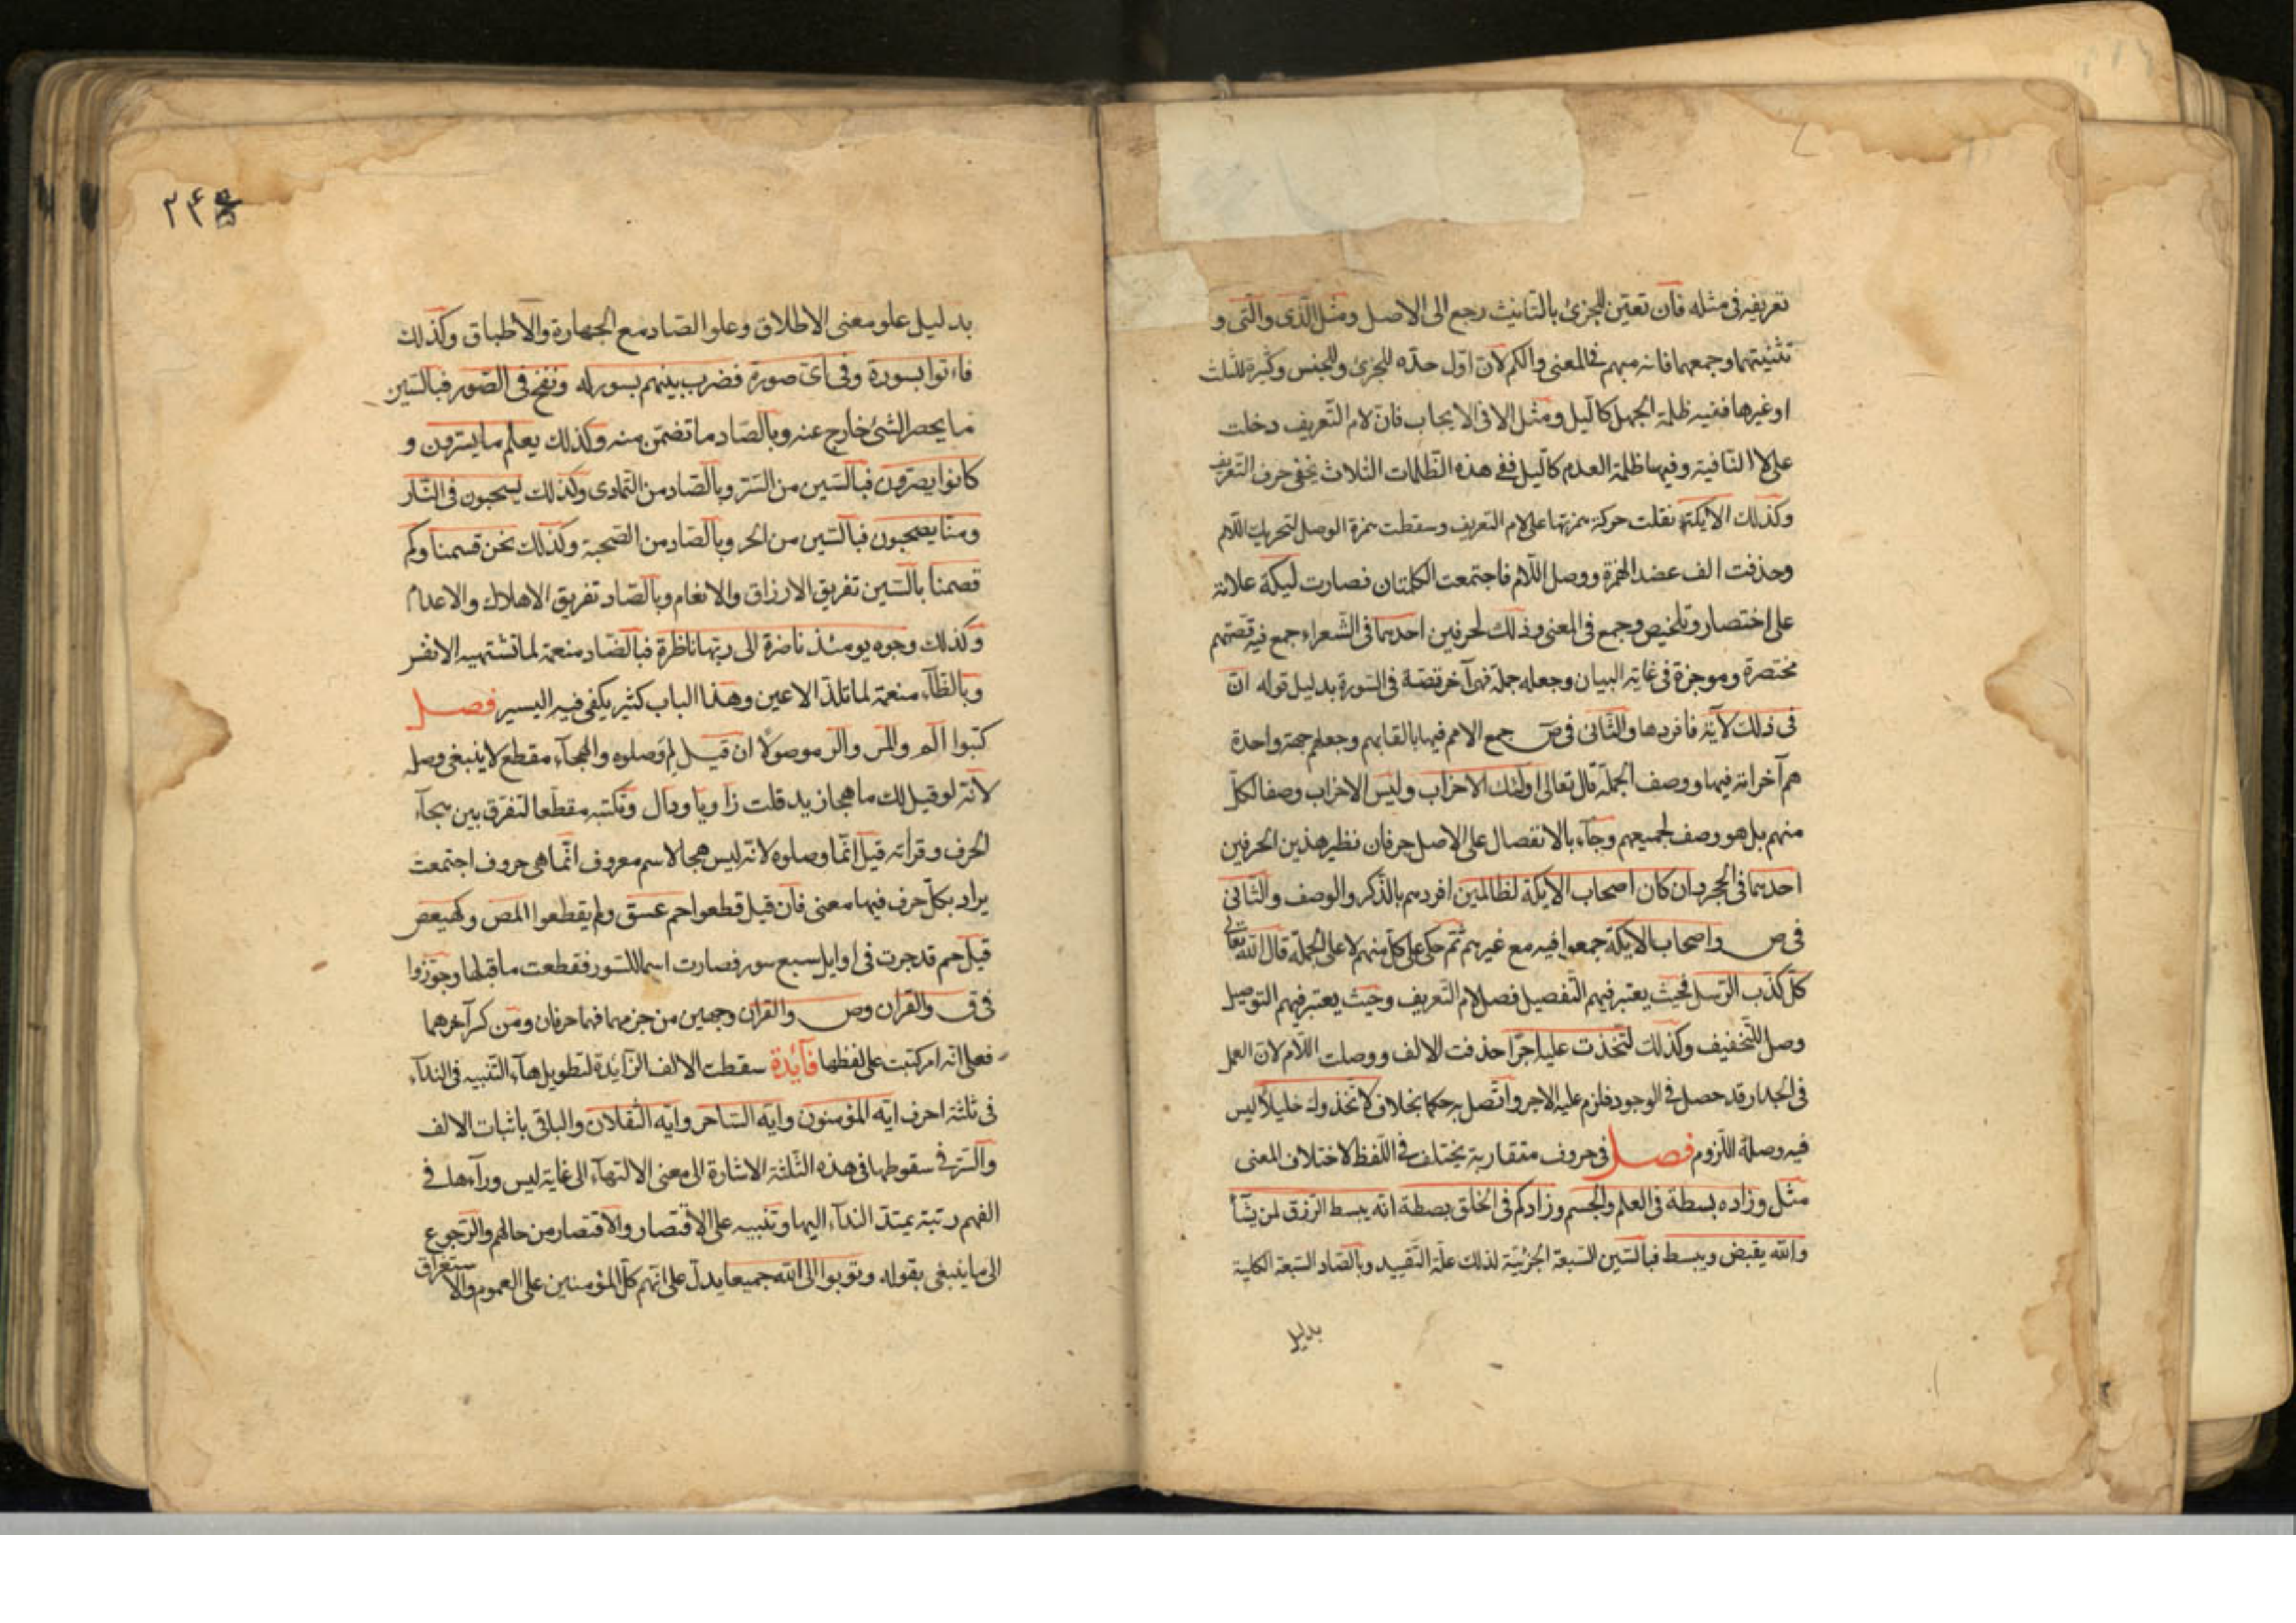 تعريفه فى مثله فان تعين للجزئ بالتانيث رجع الى الاصل ومثل الذى والتى و
تثنيتهما وجمعهما فانه مبهم فى المعنى والكم لان اول حده للجزئ وللجنس وكثرة للثلث
او غيرها ففيه ظلمة الجهل كاليل ومثل الا فى الايجاب فان لام التعريف دخلت
على لا النافية وفيها ظلمة العدم كاليل ففى هذه الظلمات الثلاث يخفى حرف التعريف
وكذلك الايكة نقلت حركة همزتها على لام التعريف وسقطت همزة الوصل لتحريك اللام
وحذفت الف عضد الهمزة ووصل اللام فاجتمعت الكلمتان فصارت ليكة علامة
على اختصار وتلخيص وجمع فى المعنى وذلك لحرفين احدهما فى الشعراء جمع فيه قصتهم
مختصرة وموجزة فى غاية البيان وجعله جملة فهى آخر قصة فى السورة بدليل قوله ان
فى ذلك لآية فافردها والثانى فى ص جمع الامم فيها بالقابهم وجعلهم جهة واحدة
هم آخر امة فيها ووصف الجملة قال تعالى اولئك الاحزاب وليس الاحزاب وصفا لكل
منهم بل هو وصف لجميعهم وجاء بالانفصال على الاصل حرفان نظير هذين الحرفين
احدهما فى الحجر وان كان اصحاب الايكة لظالمين افردهم بالذكر والوصف والثانى
فى ص واصحاب الايكة جمعوا فيه مع غيرهم ثم حكى على كل منهم لا على الجملة قال الله تعالى
كل كذب الرسل فحيث يعتبر فيهم التفصيل فصل لام التعريف وحيث يعتبر فيهم التوصيل
وصل للتخفيف وكذلك لتخذت عليه اجرا حذفت الالف ووصلت اللام لان العمل
فى الجدار قد حصل فى الوجود فلزم عليه الاجر واتصل به حكما بخلاف لاتخذوك خليلا ليس
فيه وصلة اللزوم فصل فى حروف متقاربة يختلف فى اللفظ لاختلاف المعنى
مثل وزاده بسطة فى العلم والجسم وزادكم فى الخلق بصطة انه يبسط الرزق لمن يشآ
والله يقبض ويبسط فبالسين السبعة الجزئية لذلك علة التقييد وبالصاد السبعة الكلية
بدليل
٢٤
بدليل علو معنى الاطلاق وعلو الصاد مع الجهارة والاطباق وكذلك
فاءتوا بسورة وفى اى صورة فضرب بينهم بسور له ونفخ فى الصور فبالسين
ما يحصر الشئ خارج عنه وبالصاد ما تضمن منه وكذلك يعلم ما يسترون و
كانوا يصرون فبالسين من الستر وبالصاد من التمادى وكذلك يسحبون فى النار
ومنا يصحبون فبالسين من الجر وبالصاد من الصحبة وكذلك نحن قسمنا وكم
قصمنا بالسين تفريق الارزاق والانعام وبالصاد تفريق الاهلاك والاعدام
وكذلك وجوه يومئذ ناضرة الى ربها ناظرة فبالضاد منعمة لما تشتهيه الانفس
وبالظاء منعمة لما تلذ الاعين وهذا الباب كثير يكفى فيه اليسير فصل
كتبوا الم والمر والر موصولا ان قيل لم وصلوه والهجاء مقطع لا ينبغى وصله
لانه لو قيل لك ما هجا زيد قلت زا ويا ودال وتكتبه مقطعا لتفرق بين هجاء
الحرف وقراته قيل انما وصلوه لانه ليس هجا لاسم معروف انما هى حروف اجتمعت
يراد بكل حرف فيها معنى فان قيل قطعوا حم عسق ولم يقطعوا المص وكهيعص
قيل حم قد جرت فى اوايل سبع سور فصارت اسما للسور فقطعت ما قبلها وجوزوا
فى ق والقران وص والقران وجهين من جزمهما فهما حرفان ومن كسر آخرهما
فعلى انه امر كتبت على لفظها فايدة سقطت الالف الزايدة لتطويل هاء التنبيه فى النداء
فى ثلثة احرف ايه المؤمنون وايه الساحر وايه الثقلان والباقى باثبات الالف
والسر فى سقوطها فى هذه الثلثة الاشارة الى معنى الانتهاء الى غاية ليس وراءها فى
الفهم رتبة يمتد النداء اليها وتنبيه على الاقتصار والاقتصار من حالهم والرجوع
الى ما ينبغى بقوله وتوبوا الى الله جميعا يدل على انهم كل المؤمنين على العموم والاستغراق